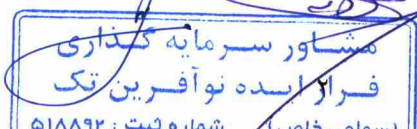 مشاور سرمایه گذاری
فراز ایده نوآفرین تک
سهامی خاص شماره ثبت : ۵۱۸۸۹۲